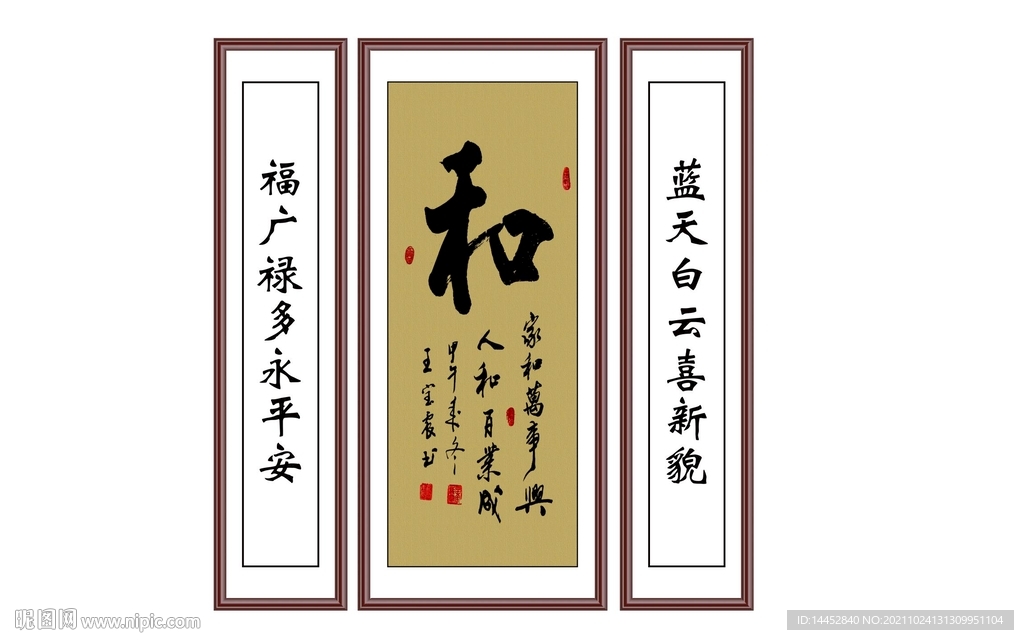 蓝天白云喜新貌
和
家和萬事興
人和百業成
甲午末冬
王宝震书
福广禄多永平安
昵图网 www.nipic.com
ID:14452840 NO:20211024131309951104